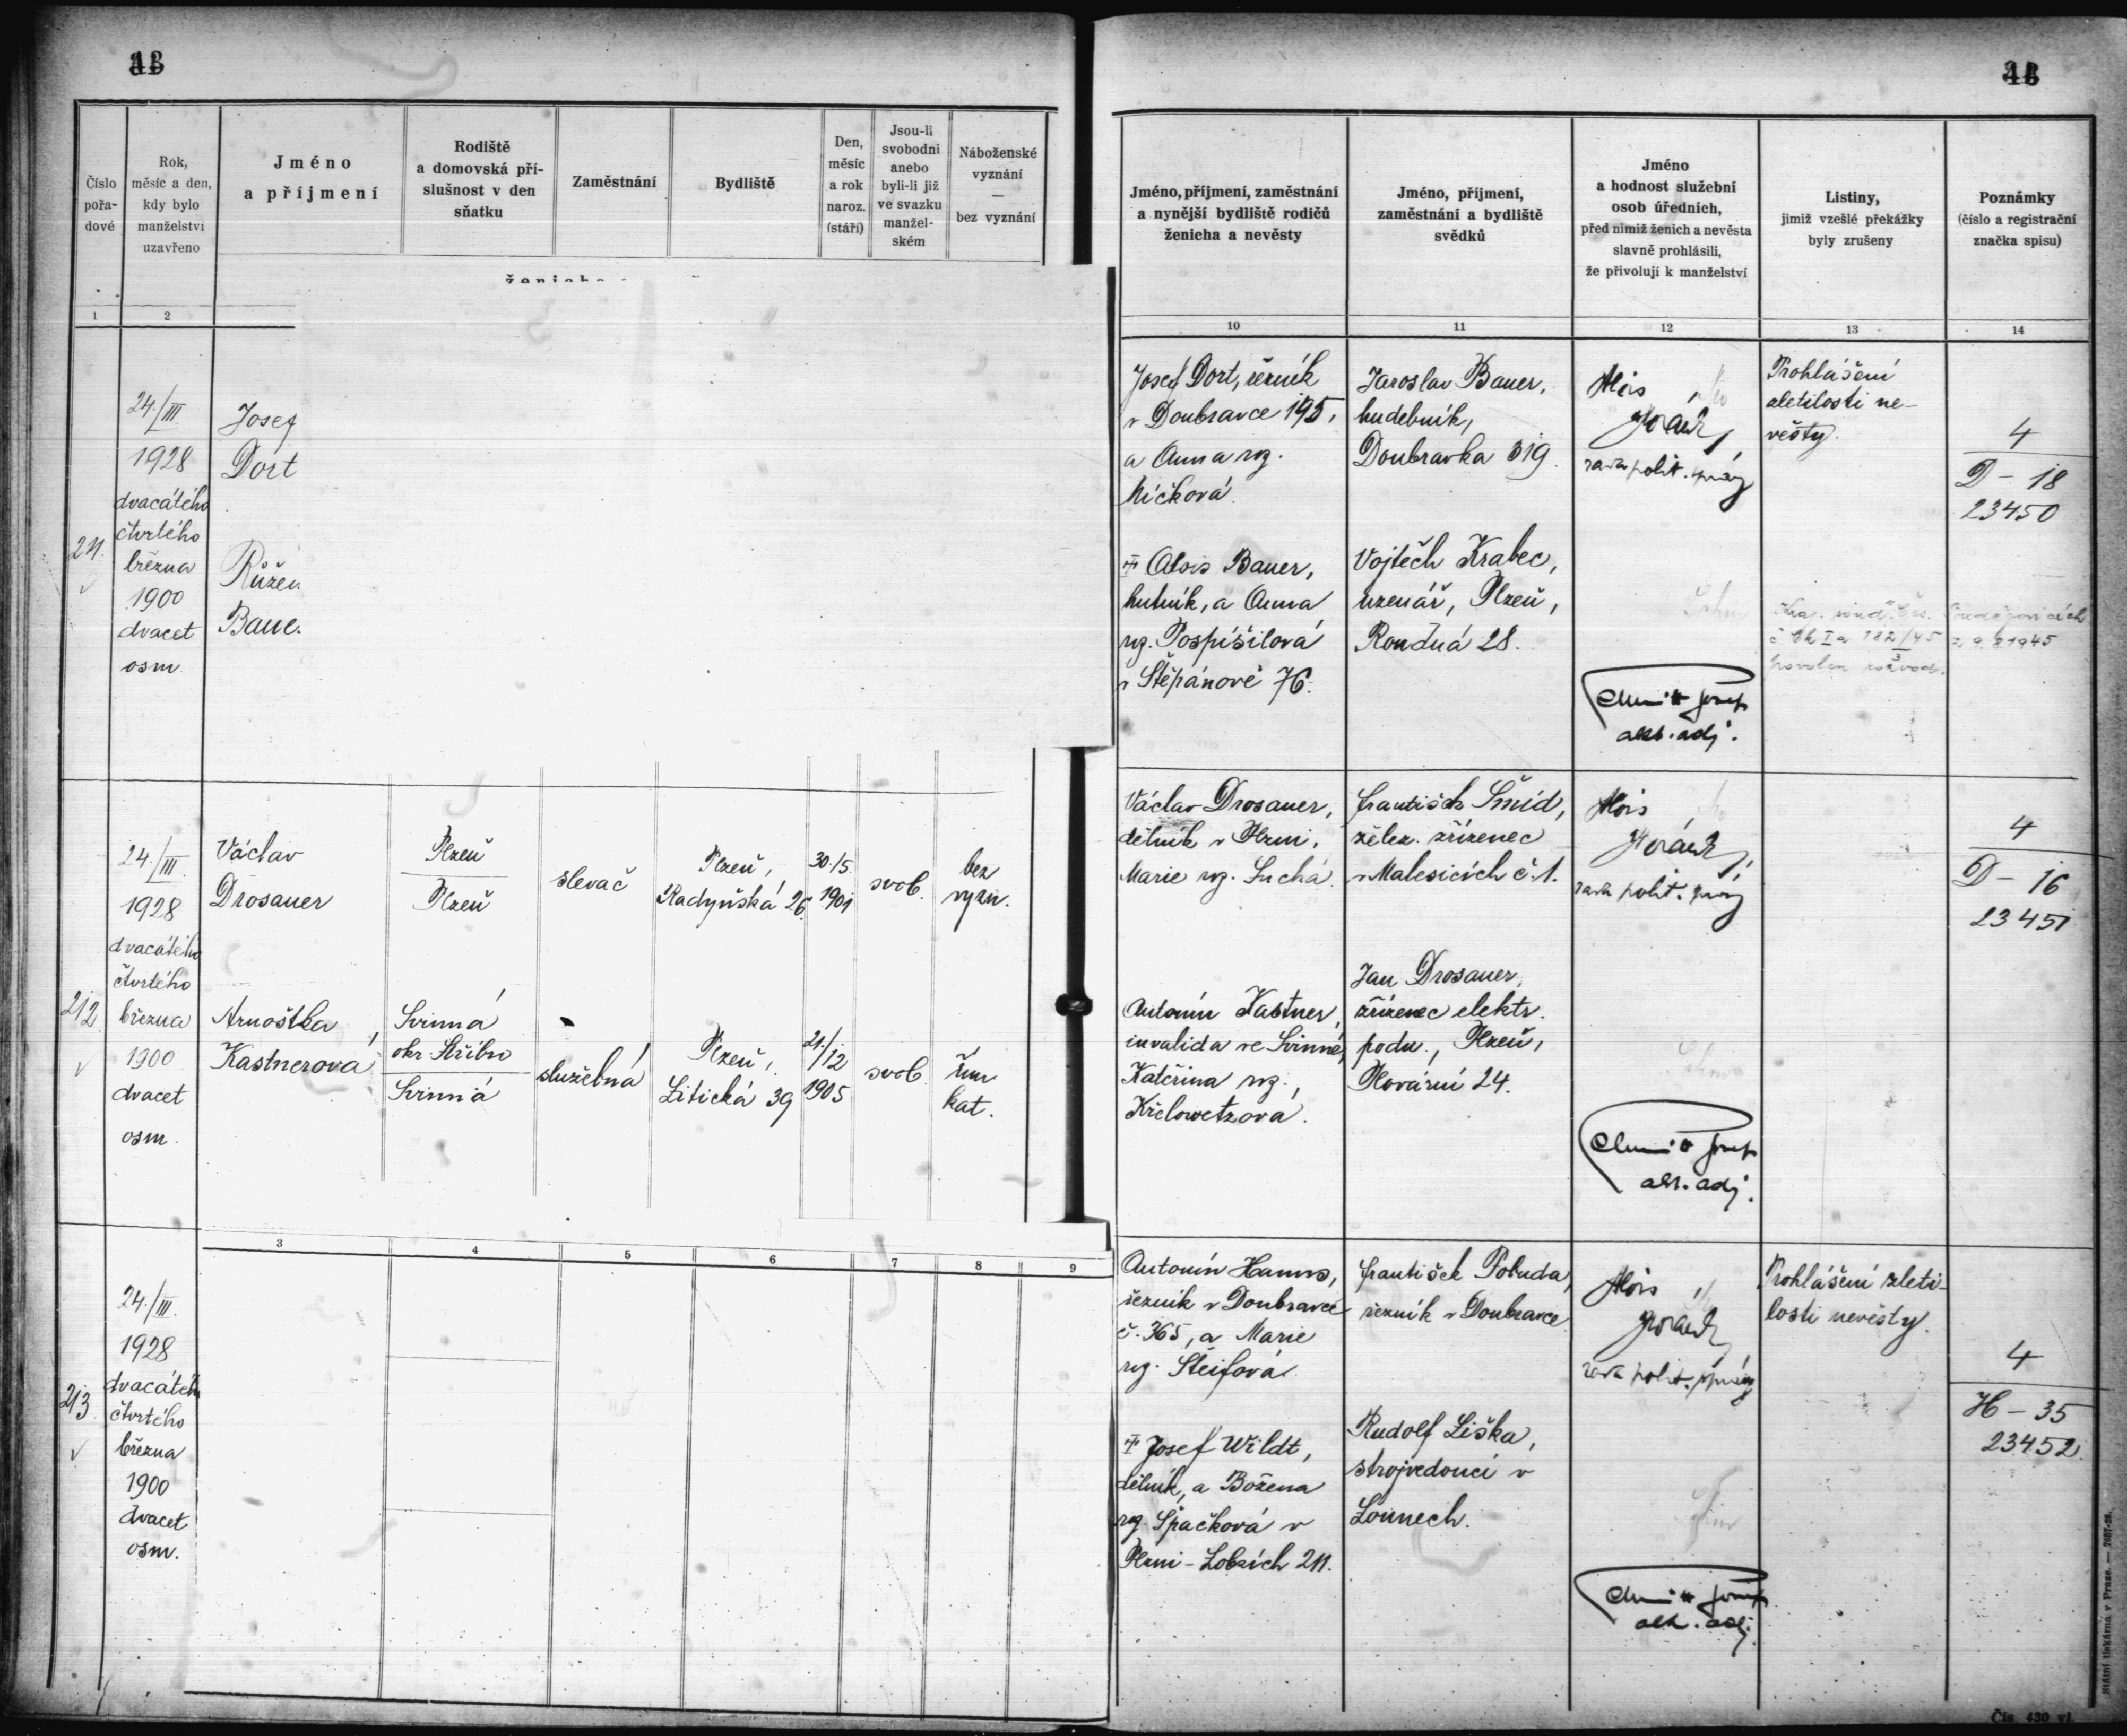 Číslo pořa- dové
Rok, měsíc a den, kdy bylo manželství uzavřeno
Jméno a příjmení
Rodiště a domovská pří- slušnost v den sňatku
Zaměstnání
Bydliště
Den, měsíc a rok naroz. (stáří)
Jsou-li svobodni anebo byli-li již ve svazku manžel- ském
Náboženské vyznání — bez vyznání
1
2
24./III.
1928
dvacátého
čtvrtého
března
1900
dvacet
osm.
Josef
Dort
Bau
24./III.
1928
dvacátého
čtvrtého
212
března
1900
dvacet
osm.
Václav
Drosauer
Plzeň
Plzeň
slevač
Plzeň,
Radyňská 26.
30./5.
1901
svob.
bez
vyzn.
Arnoštka
Kastnerová
Svinná
okr. Stříbro
Svinná
služebná
Plzeň,
Litická 39
21./12
1905
svob.
řím.
kat.
3
4
5
6
7
8
9
24./III.
1928
dvacátého
čtvrtého
213
března
1900
dvacet
osm.
Jméno, příjmení, zaměstnání
a nynější bydliště rodičů
ženicha a nevěsty
Jméno, příjmení,
zaměstnání a bydliště
svědků
Jméno
a hodnost služební
osob úředních,
před nimiž ženich a nevěsta
slavně prohlásili,
že přivolují k manželství
Listiny,
jimiž vzešlé překážky
byly zrušeny
Poznámky
(číslo a registrační
značka spisu)
10
11
12
13
14
Josef Dort, řezník
v Doubravce 195,
a Anna roz.
Míčková.
Jaroslav Bauer,
hudebník,
Doubravka 319.
Alois
Horáček,
rada polit. správy
Prohlášení
zletilosti ne-
věsty.
4
D - 18
23450
† Alois Bauer,
hutník, a Anna
roz. Pospíšilová
v Štěpánově 76.
Vojtěch Krabec,
uzenář, Plzeň,
Roudná 28.
povolen rozvod.
Josef
adj.
Václav Drosauer,
dělník v Plzni,
Marie roz. Suchá.
František Šmíd,
želez. zřízenec
v Malesicích č. 1.
Alois
Horáček,
rada polit. správy
4
D - 16
23451
Antonín Kastner,
invalida ve Svinné,
Kateřina roz.
Jan Drosauer,
zřízenec elektr.
podn., Plzeň,
Plovární 24.
Josef
adj.
Antonín Hanus,
řezník v Doubravce
č. 365, a Marie
roz. Šteifová.
František Pobuda,
řezník v Doubravce
Alois
Horáček,
rada polit. správy
Prohlášení zleti-
losti nevěsty.
4
H - 35
23452.
† Josef Wildt,
dělník, a Božena
roz. Špačková v
Plzni - Lobzích 211.
Rudolf Liška,
strojvedoucí v
Lounech.
Josef
adj.
Státní tiskárna v Praze. — 2057-26.
Čís. 430 vl.